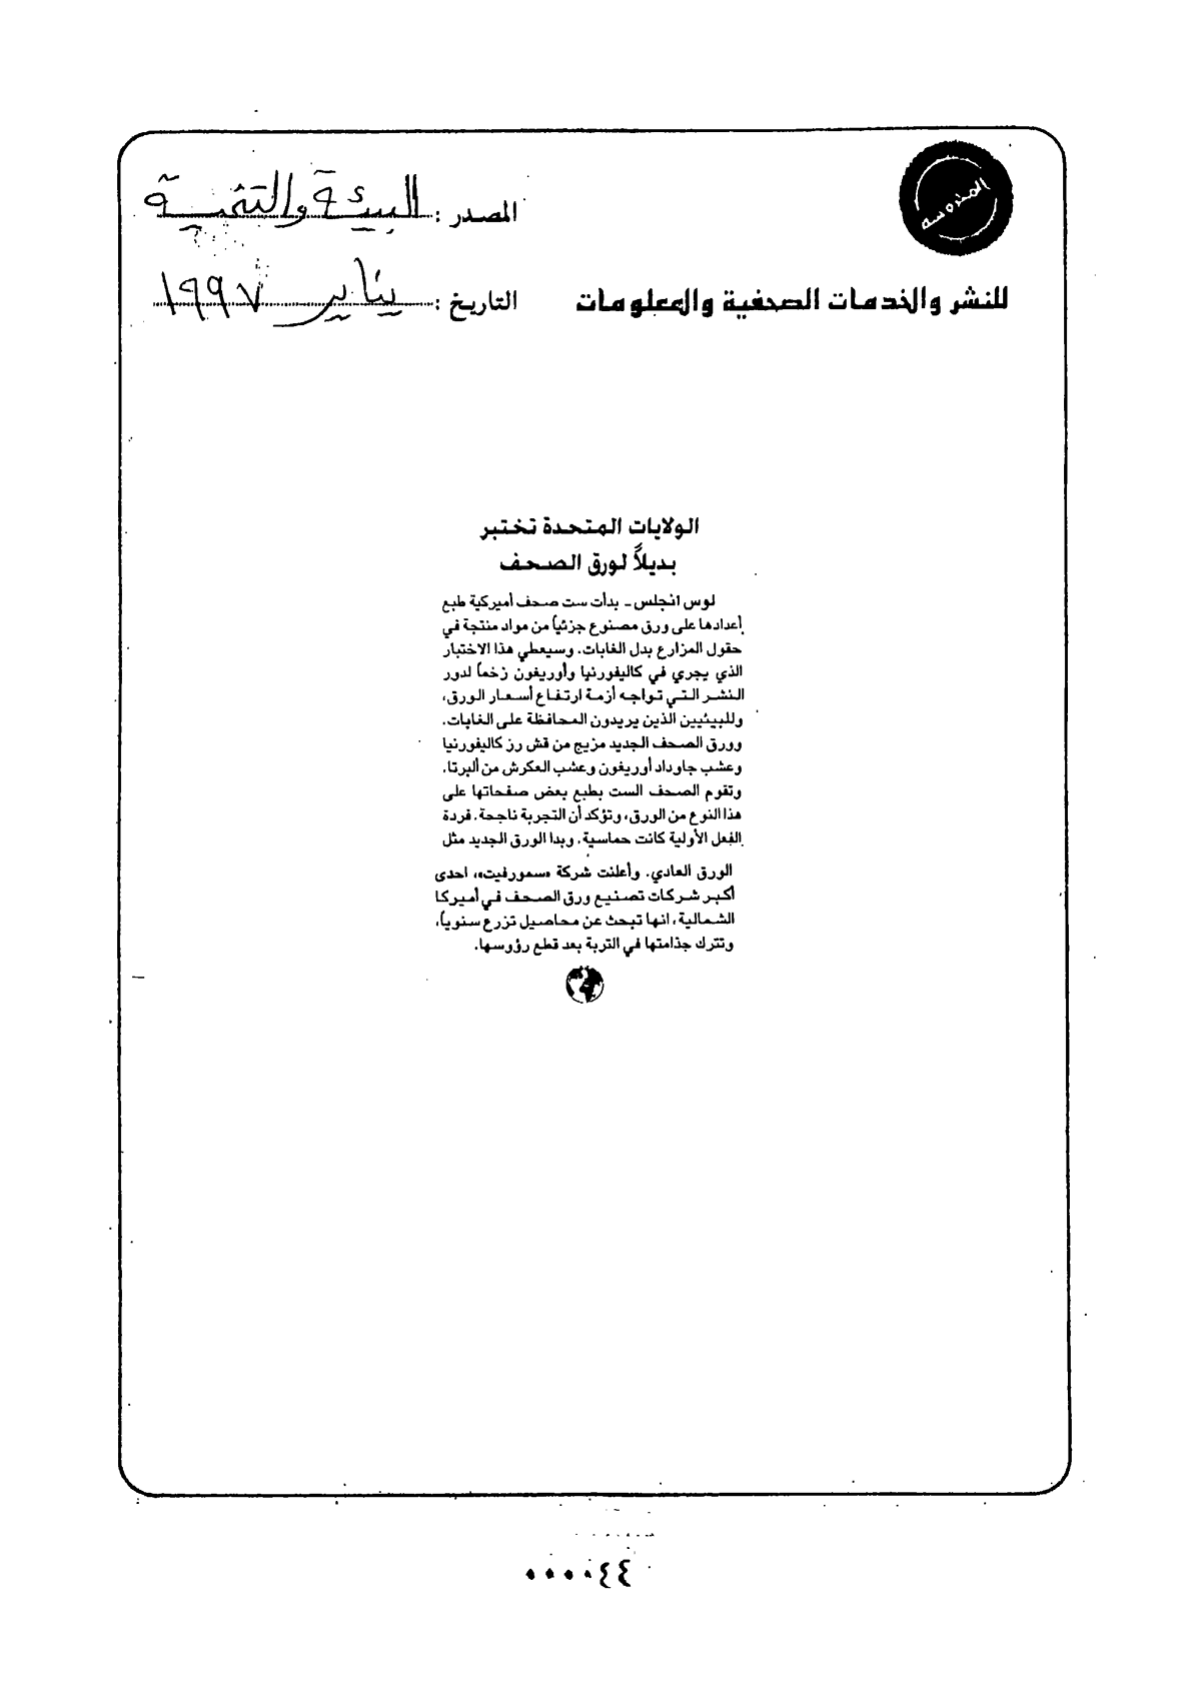 المحروسة
للنشر والخدمات الصحفية والمعلومات
المصدر : البيئة والتنمية
التاريخ : يناير ١٩٩٧
الولايات المتحدة تختبر
بديلاً لورق الصحف
لوس انجلس ـ بدأت ست صحف أميركية طبع
أعدادها على ورق مصنوع جزئياً من مواد منتجة في
حقول المزارع بدل الغابات. وسيعطي هذا الاختبار
الذي يجري في كاليفورنيا وأوريغون زخماً لدور
النشر التي تواجه أزمة ارتفاع أسعار الورق،
وللبيئيين الذين يريدون المحافظة على الغابات.
وورق الصحف الجديد مزيج من قش رز كاليفورنيا
وعشب جاودار أوريغون وعشب العكرش من ألبرتا.
وتقوم الصحف الست بطبع بعض صفحاتها على
هذا النوع من الورق، وتؤكد أن التجربة ناجحة. فردة
الفعل الأولية كانت حماسية. وبدا الورق الجديد مثل
الورق العادي. وأعلنت شركة «سمورفيت»، احدى
أكبر شركات تصنيع ورق الصحف في أميركا
الشمالية، انها تبحث عن محاصيل تزرع سنوياً،
وتترك جذامتها في التربة بعد قطع رؤوسها.
٠٠٠٠٤٤